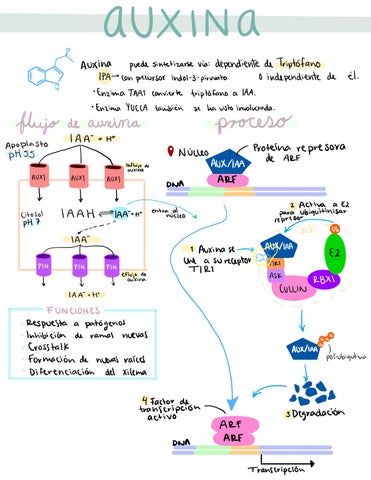 AUXINA
Auxina puede sintetizarse vía: dependiente de Triptófano
IPA → con precursor indol-3-piruvato o independiente de él.
• Enzima TAA1 convierte triptófano a IAA.
• Enzima YUCCA también se ha visto involucrada.
flujo de auxina
proceso
IAA⁻ + H⁺
Apoplasto
pH 5.5
AUX1 AUX1 AUX1
Influjo de
auxina
Citosol
pH 7
IAAH ⇌ IAA⁻ + H⁺
entra al
núcleo
IAA⁻
PIN PIN PIN
eflujo de
auxina
IAA⁻ + H⁺
FUNCIONES
• Respuesta a patógenos
• Inhibición de ramas nuevas
• Crosstalk
• Formación de nuevas raíces
• Diferenciación del xilema
Núcleo
Proteína represora
de ARF
AUX/IAA
ARF
DNA
2 Activa a E2
para ubiquitinisar
represor
1 Auxina se
une a su receptor
TIR1
SCF
AUX/IAA
TIR1
ASK
CULLIN
RBX1
E2
Ub
AUX/IAA
poliubiquitina
3 Degradación
4 Factor de
transcripción
activo
ARF
ARF
DNA
Transcripción